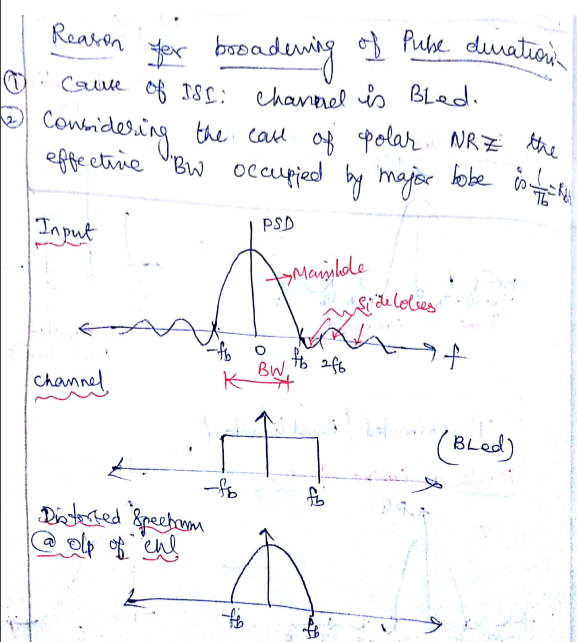 Reason for broadening of Pulse duration
① Cause of ISI: channel is BLed.
② Considering the case of polar NRZ the
effective BW occupied by major lobe is 1/Tb = Rb
Input
PSD
Mainlobe
Sidelobes
-fb 0 fb 2fb f
BW
channel
(BLed)
-fb fb
Distorted Spectrum
@ o/p of chl
-fb fb